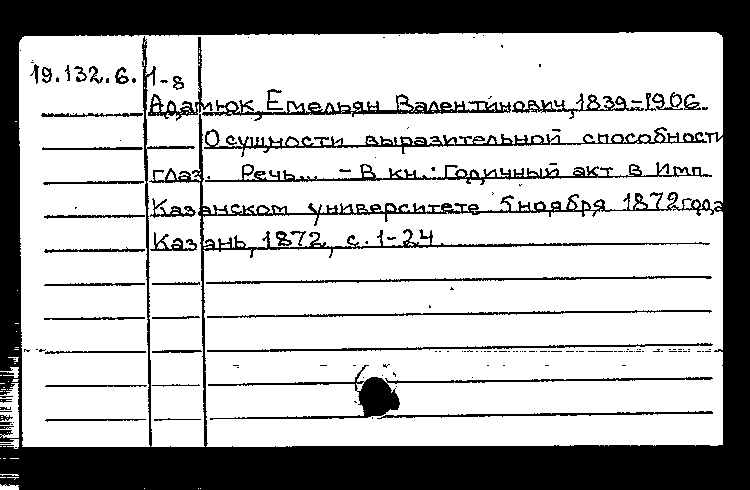 19.132.6. 1-8
Адамюк, Емельян Валентинович, 1839-1906
О сущности выразительной способности
глаз. Речь... - В кн.: Годичный акт в Имп.
Казанском университете 5 ноября 1872 года
Казань, 1872, с. 1-24.